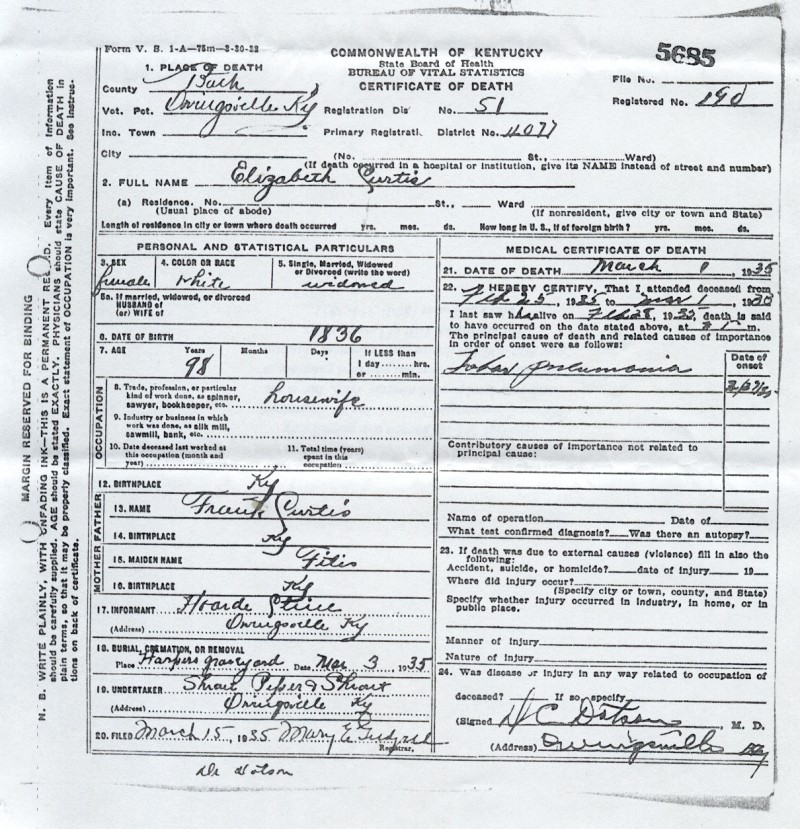 Form V. S. 1-A—75m—3-30-32
COMMONWEALTH OF KENTUCKY
State Board of Health
BUREAU OF VITAL STATISTICS
CERTIFICATE OF DEATH
5685
File No.
Registered No. 190
1. PLACE OF DEATH
County Bath
Vot. Pct. Owingsville Ky Registration Dis No. 51
Inc. Town Primary Registrati. District No. 4077
City (No. St., Ward)
(If death occurred in a hospital or institution, give its NAME instead of street and number)
2. FULL NAME Elizabeth Curtis
(a) Residence. No. St., Ward
(Usual place of abode) (If nonresident, give city or town and State)
Length of residence in city or town where death occurred yrs. mos. ds. How long in U. S., if of foreign birth? yrs. mos. ds.
PERSONAL AND STATISTICAL PARTICULARS
3. SEX 4. COLOR OR RACE 5. Single, Married, Widowed
or Divorced (write the word)
female white widowed
5a. If married, widowed, or divorced
HUSBAND of
(or) WIFE of
6. DATE OF BIRTH 1836
7. AGE Years Months Days If LESS than
98 1 day hrs.
or min.
OCCUPATION
8. Trade, profession, or particular
kind of work done, as spinner,
sawyer, bookkeeper, etc. housewife
9. Industry or business in which
work was done, as silk mill,
sawmill, bank, etc.
10. Date deceased last worked at
this occupation (month and
year)
11. Total time (years)
spent in this
occupation
12. BIRTHPLACE Ky
FATHER
13. NAME Frank Curtis
14. BIRTHPLACE Ky
MOTHER
15. MAIDEN NAME
16. BIRTHPLACE Ky
17. INFORMANT
(Address) Owingsville Ky
18. BURIAL, CREMATION, OR REMOVAL
Place Harpers graveyard Date Mar 3 1935
19. UNDERTAKER Shrout Peper & Shrout
(Address) Owingsville Ky
20. FILED March 15, 1935 Mary E.
Registrar.
MEDICAL CERTIFICATE OF DEATH
21. DATE OF DEATH March 1, 1935
22. I HEREBY CERTIFY, That I attended deceased from
Feb 25, 1935 to Mar 1, 19
I last saw h alive on Feb 28, 19 death is said
to have occurred on the date stated above, at m.
The principal cause of death and related causes of importance
in order of onset were as follows:
Date of
onset
Lobar pneumonia
Contributory causes of importance not related to
principal cause:
Name of operation Date of
What test confirmed diagnosis? Was there an autopsy?
23. If death was due to external causes (violence) fill in also the
following:
Accident, suicide, or homicide? date of injury 19
Where did injury occur?
(Specify city or town, county, and State)
Specify whether injury occurred in industry, in home, or in
public place.
Manner of injury
Nature of injury
24. Was disease or injury in any way related to occupation of
deceased? If so, specify
(Signed) H C Dotson M. D.
(Address) Owingsville Ky
Dr Dotson
MARGIN RESERVED FOR BINDING
N. B. WRITE PLAINLY, WITH UNFADING INK—THIS IS A PERMANENT RECORD. Every item of information
should be carefully supplied. AGE should be stated EXACTLY. PHYSICIANS should state CAUSE OF DEATH in
plain terms, so that it may be properly classified. Exact statement of OCCUPATION is very important. See instruc-
tions on back of certificate.